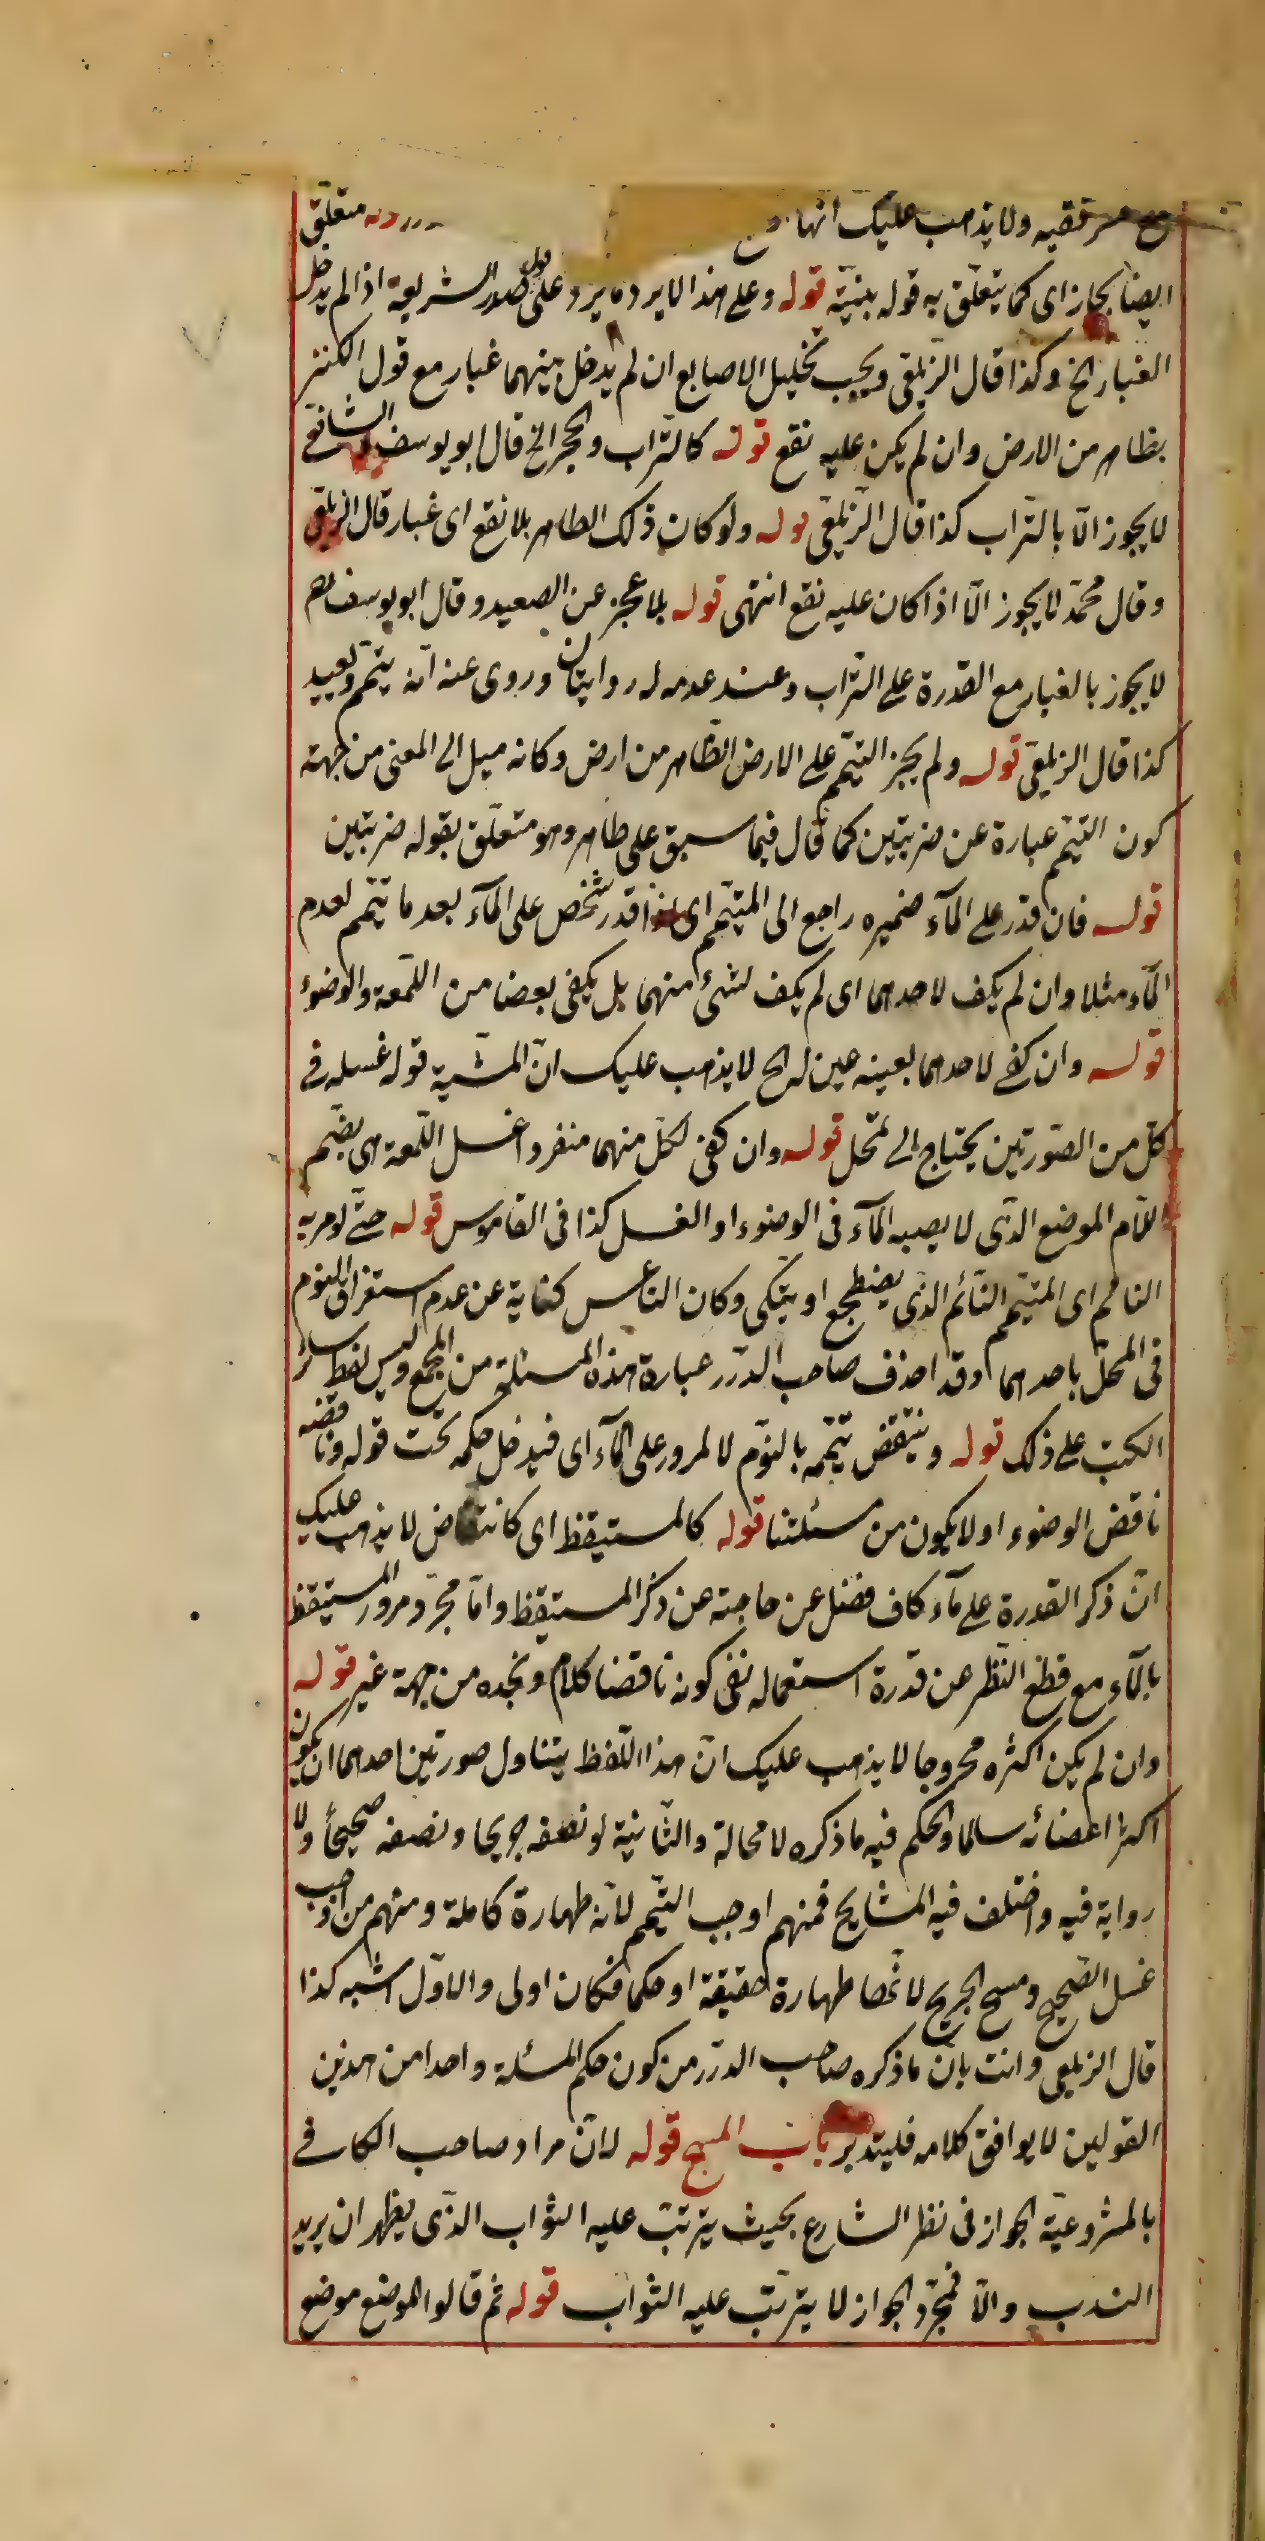 مع مرفقيه ولا يذهب عليك انها متعلق
ايضا بجاز اى كما يتعلق به قوله بنية قوله وعلى هذا لا يرد ما يرد على قول صدر الشريعة اذا لم يدخل
الغبار الخ وكذا قال الزيلعى ويجب تخليل الاصابع ان لم يدخل بينهما غبار مع قول الكنز
بطاهر من الارض وان لم يكن عليه نقع قوله كالتراب والحجر الخ قال ابو يوسف والشافعى
لا يجوز الا بالتراب كذا قال الزيلعى قوله ولو كان ذلك الطاهر بلا نقع اى غبار قال الزيلعى
وقال محمد لا يجوز الا اذا كان عليه نقع انتهى قوله بلا عجز عن الصعيد وقال ابو يوسف
لا يجوز بالغبار مع القدرة على التراب وعند عدمه له روايتان وروى عنه انه يتيمم ويعيد
كذا قال الزيلعى قوله ولم يجز التيمم على الارض الطاهر من ارض وكانه ميل الى المعنى من جهة
كون التيمم عبارة عن ضربتين كما قال فيما سبق على طاهر وهو متعلق بقوله ضربتين
قوله فان قدر على الماء ضميره راجع الى المتيمم اى اذا قدر شخص على الماء بعد ما تيمم لعدم
الماء مثلا وان لم يكف لاحدهما اى لم يكف لشئ منهما بل يكفى بعضا من اللمعة والوضوء
قوله وان كفى لاحدهما بعينه عين له الخ لا يذهب عليك ان المشية قوله غسله فى
كل من الصورتين يحتاج الى تمحل قوله وان كفى لكل منهما منفردا غسل اللمعة هى بضم
اللام الموضع الذى لا يصيبه الماء فى الوضوء او الغسل كذا فى القاموس قوله حتى لو مر به
النائم اى المتيمم النائم الذى يضطجع او يتكى وكان الناعس كناية عن عدم استغراق النوم
فى المحل باحدهما وقد اخذف صاحب الدرر عبارة هذه المسئلة من المجمع وليس لفظ سائر
الكتب على ذلك قوله وينتقض تيممه بالنوم لا لمرور على الماء اى فيدخل حكمه تحت قوله وناقضه
ناقض الوضوء او لا يكون من مسئلتنا قوله كالمستيقظ اى كانتقاض لا يذهب عليك
ان ذكر القدرة على ماء كاف فضل عن حاجته عن ذكر المستيقظ واما مجرد مرور المستيقظ
بالماء مع قطع النظر عن قدرة استعماله نفى كونه ناقضا كلام ونجده من جهة غير قوله
وان لم يكن اكثره مجروحا لا يذهب عليك ان هذا اللفظ يتناول صورتين احدهما ان يكون
اكثر اعضائه سالما والحكم فيه ما ذكره لا محالة والثانية لو نصفه جريحا ونصفه صحيحا ولا
رواية فيه واختلف فيه المشايخ فمنهم اوجب التيمم لانه طهارة كاملة ومنهم من اوجب
غسل الصحيح ومسح الجريح لانها طهارة حقيقة او حكما فكان اولى والاول اشبه كذا
قال الزيلعى وانت بان ما ذكره صاحب الدرر من كون حكم المسئلة واحدا من هذين
القولين لا يوافق كلامه فليتدبر باب المسح قوله لان مراد صاحب الكافى
بالمشروعية الجواز فى نظر الشارع بحيث يترتب عليه الثواب الذى يظهر ان يريد
الندب والا فمجرد الجواز لا يترتب عليه الثواب قوله ثم قالوا الموضع موضع